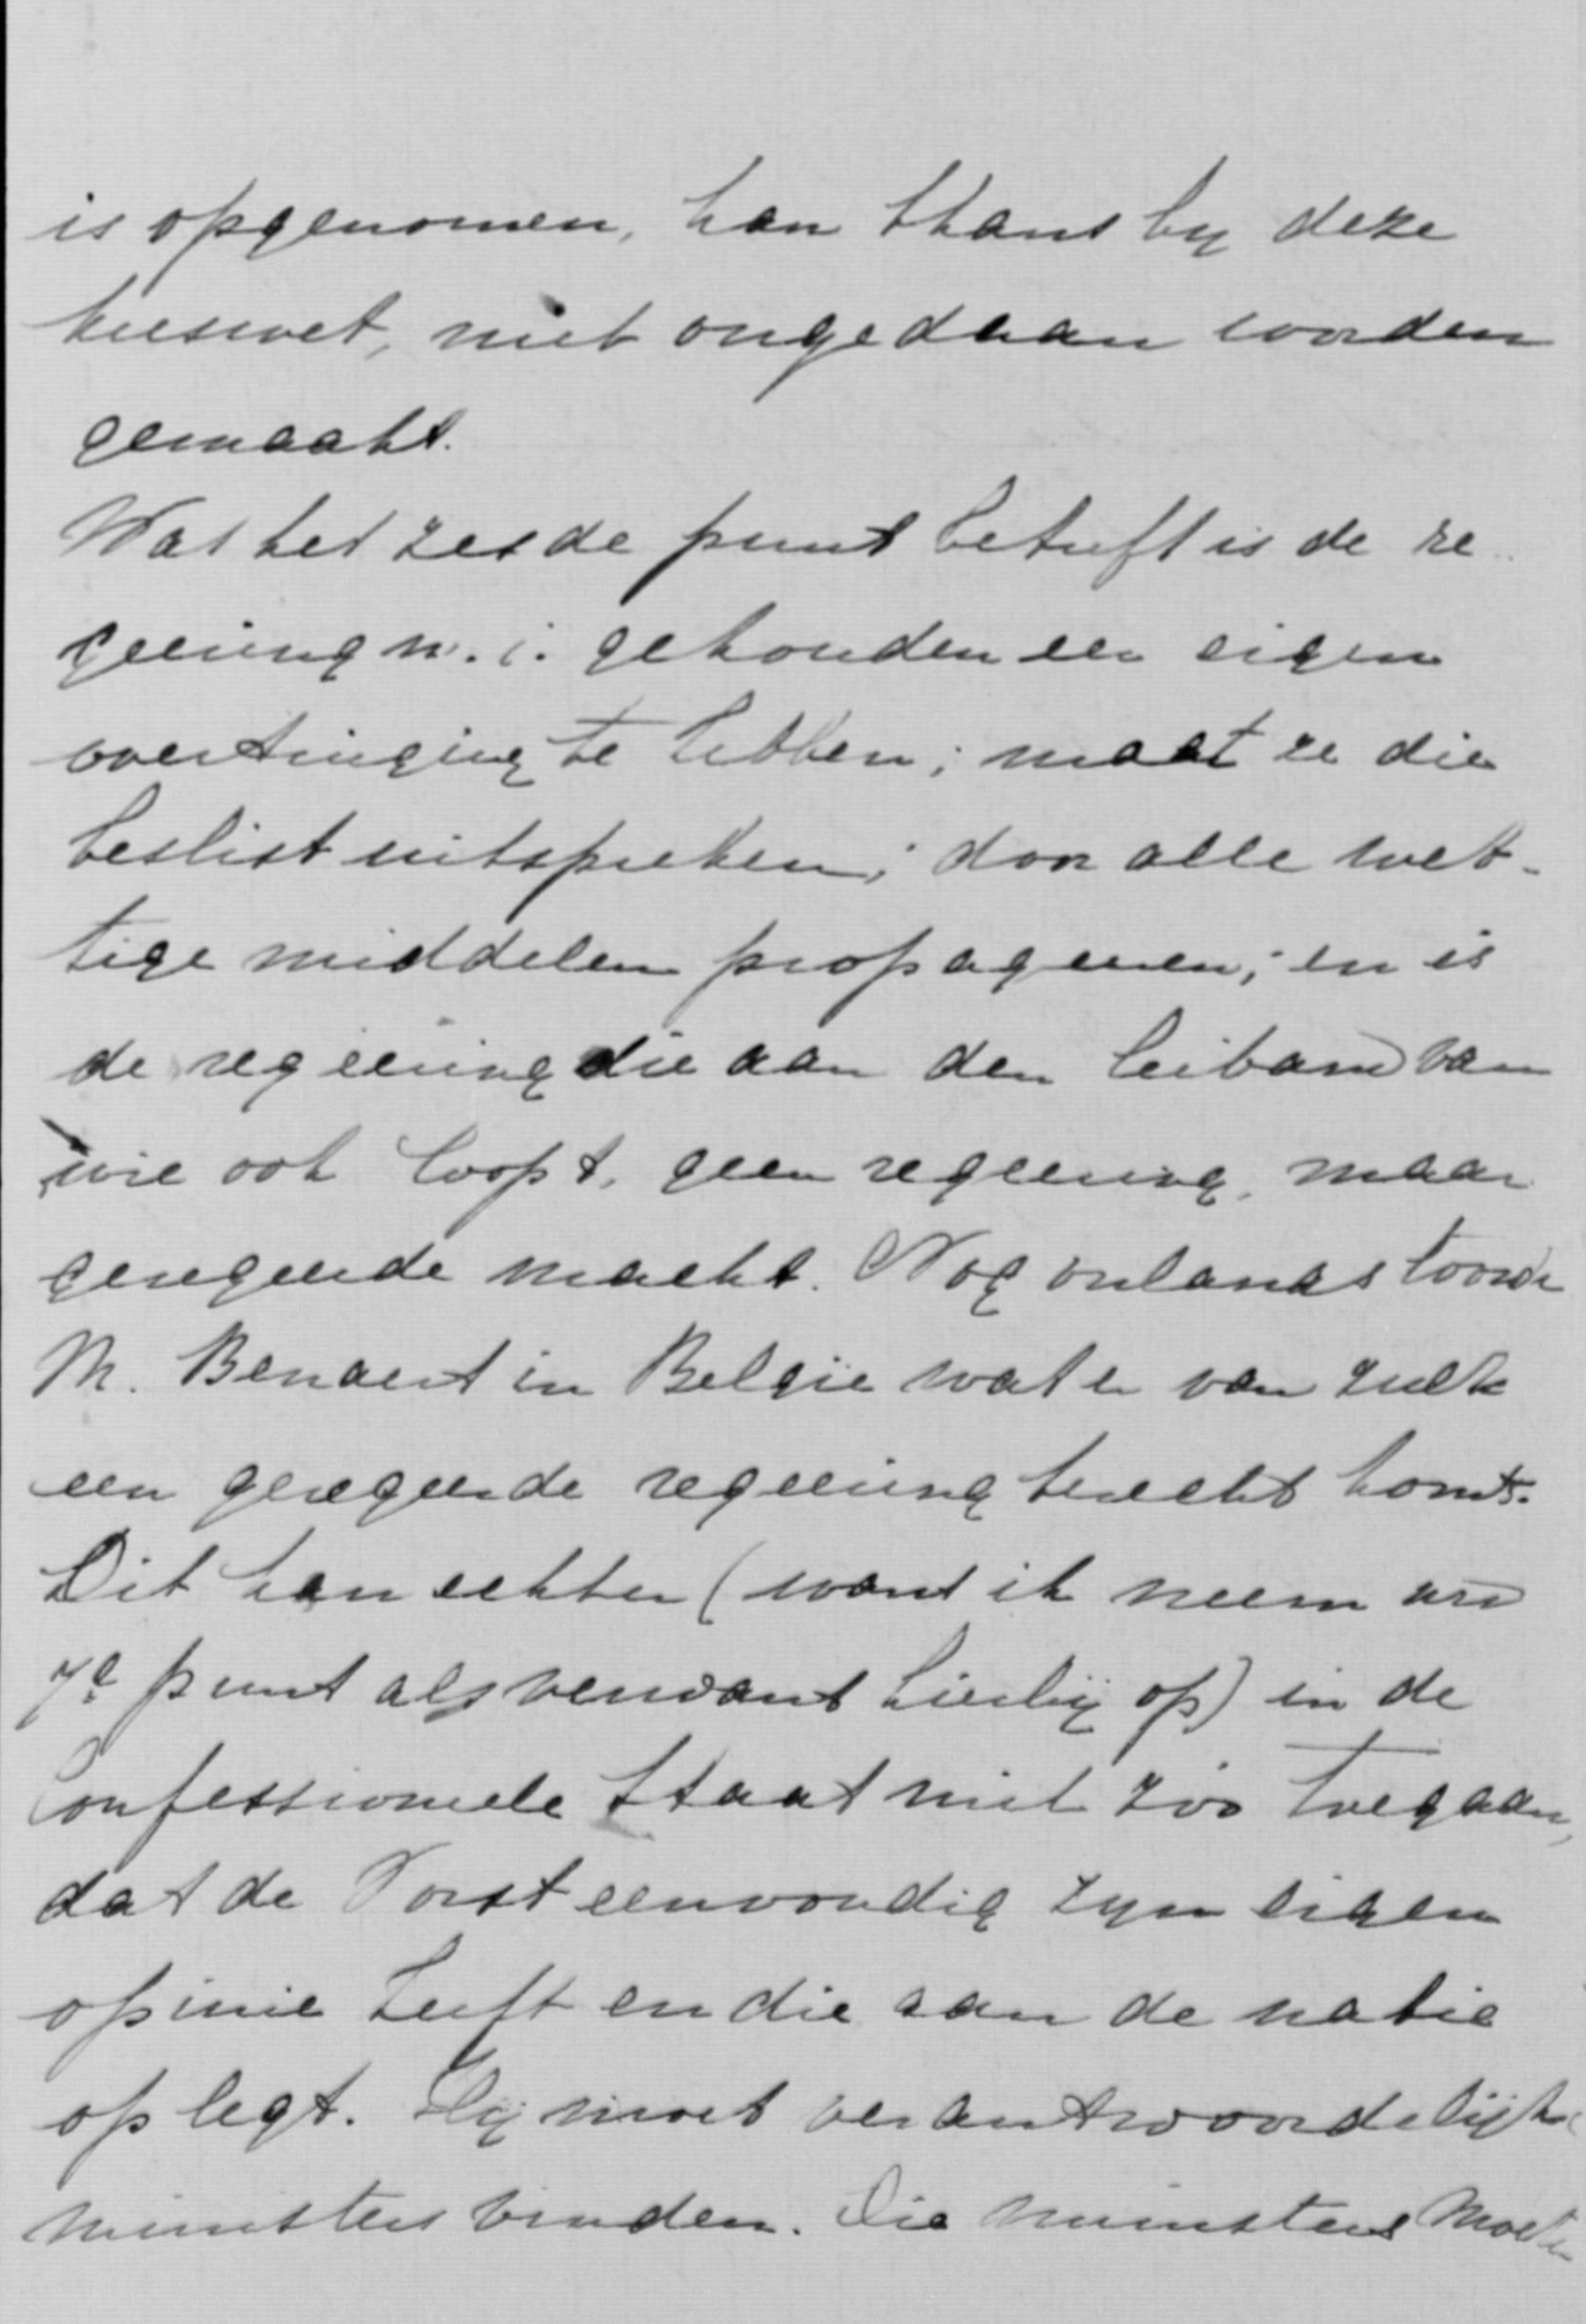 is opgenomen, kan thans by deze
kieswet, niet ongedaan worden
gemaakt.
Wat het zesde punt betreft is de re-
geering m.i. gehouden een eigen
overtuiging te hebben; moet ze die
beslist uitspreken; door alle wet-
tige middelen propageeren; en is
de regeering die aan den leiband van
wie ook loopt, geen regeering, maar
geregeerde macht. Nog onlangs toonde
M. Bernaert in België wat er van zulk
een geregeerde regeering terecht komt.
Dit kan echter (want ik neem uw
7e punt als verwant hierbij op) in de
Confessioneele Staat niet zóó toegaan,
dat de Vorst eenvoudig zyn eigen
opinie heeft en die aan de natie
oplegt. Hij moet verantwoordelijke
ministers vinden. Die ministers moeten